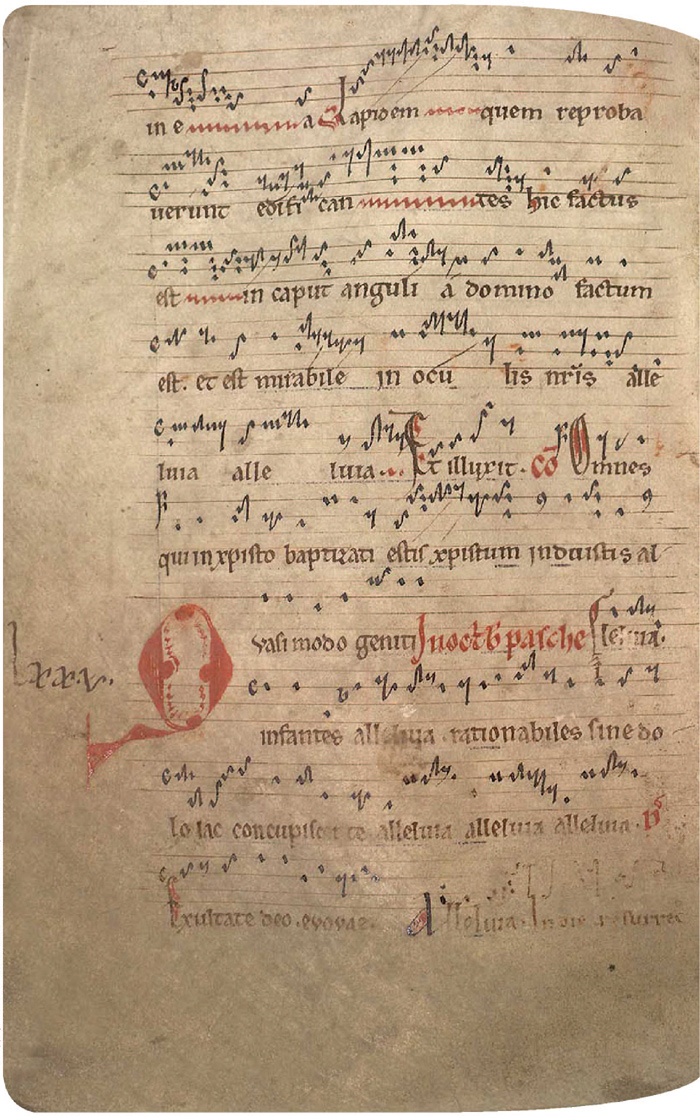 in e a Lapidem quem reproba
uerunt edifican tes hic factus
est in caput anguli a domino factum
est. et est mirabile in ocu lis nr̄is alle
luia alle luia. Et illuxit. cō Omnes
qui in xpisto baptizati estis xpistum induistis al
leluia.
Quasi modo geniti In oct̄b pasche
lxxx.
infantes alleluia rationabiles sine do
lo lac concupiscite alleluia alleluia alleluia. ps̄
Exultate deo. evovae. Alleluia. In die resurre